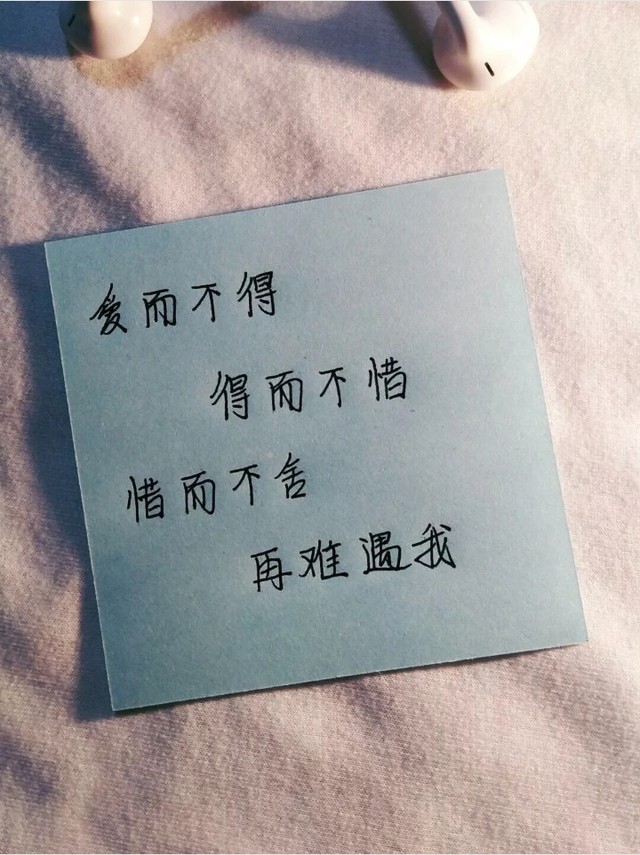 爱而不得
得而不惜
惜而不舍
再难遇我